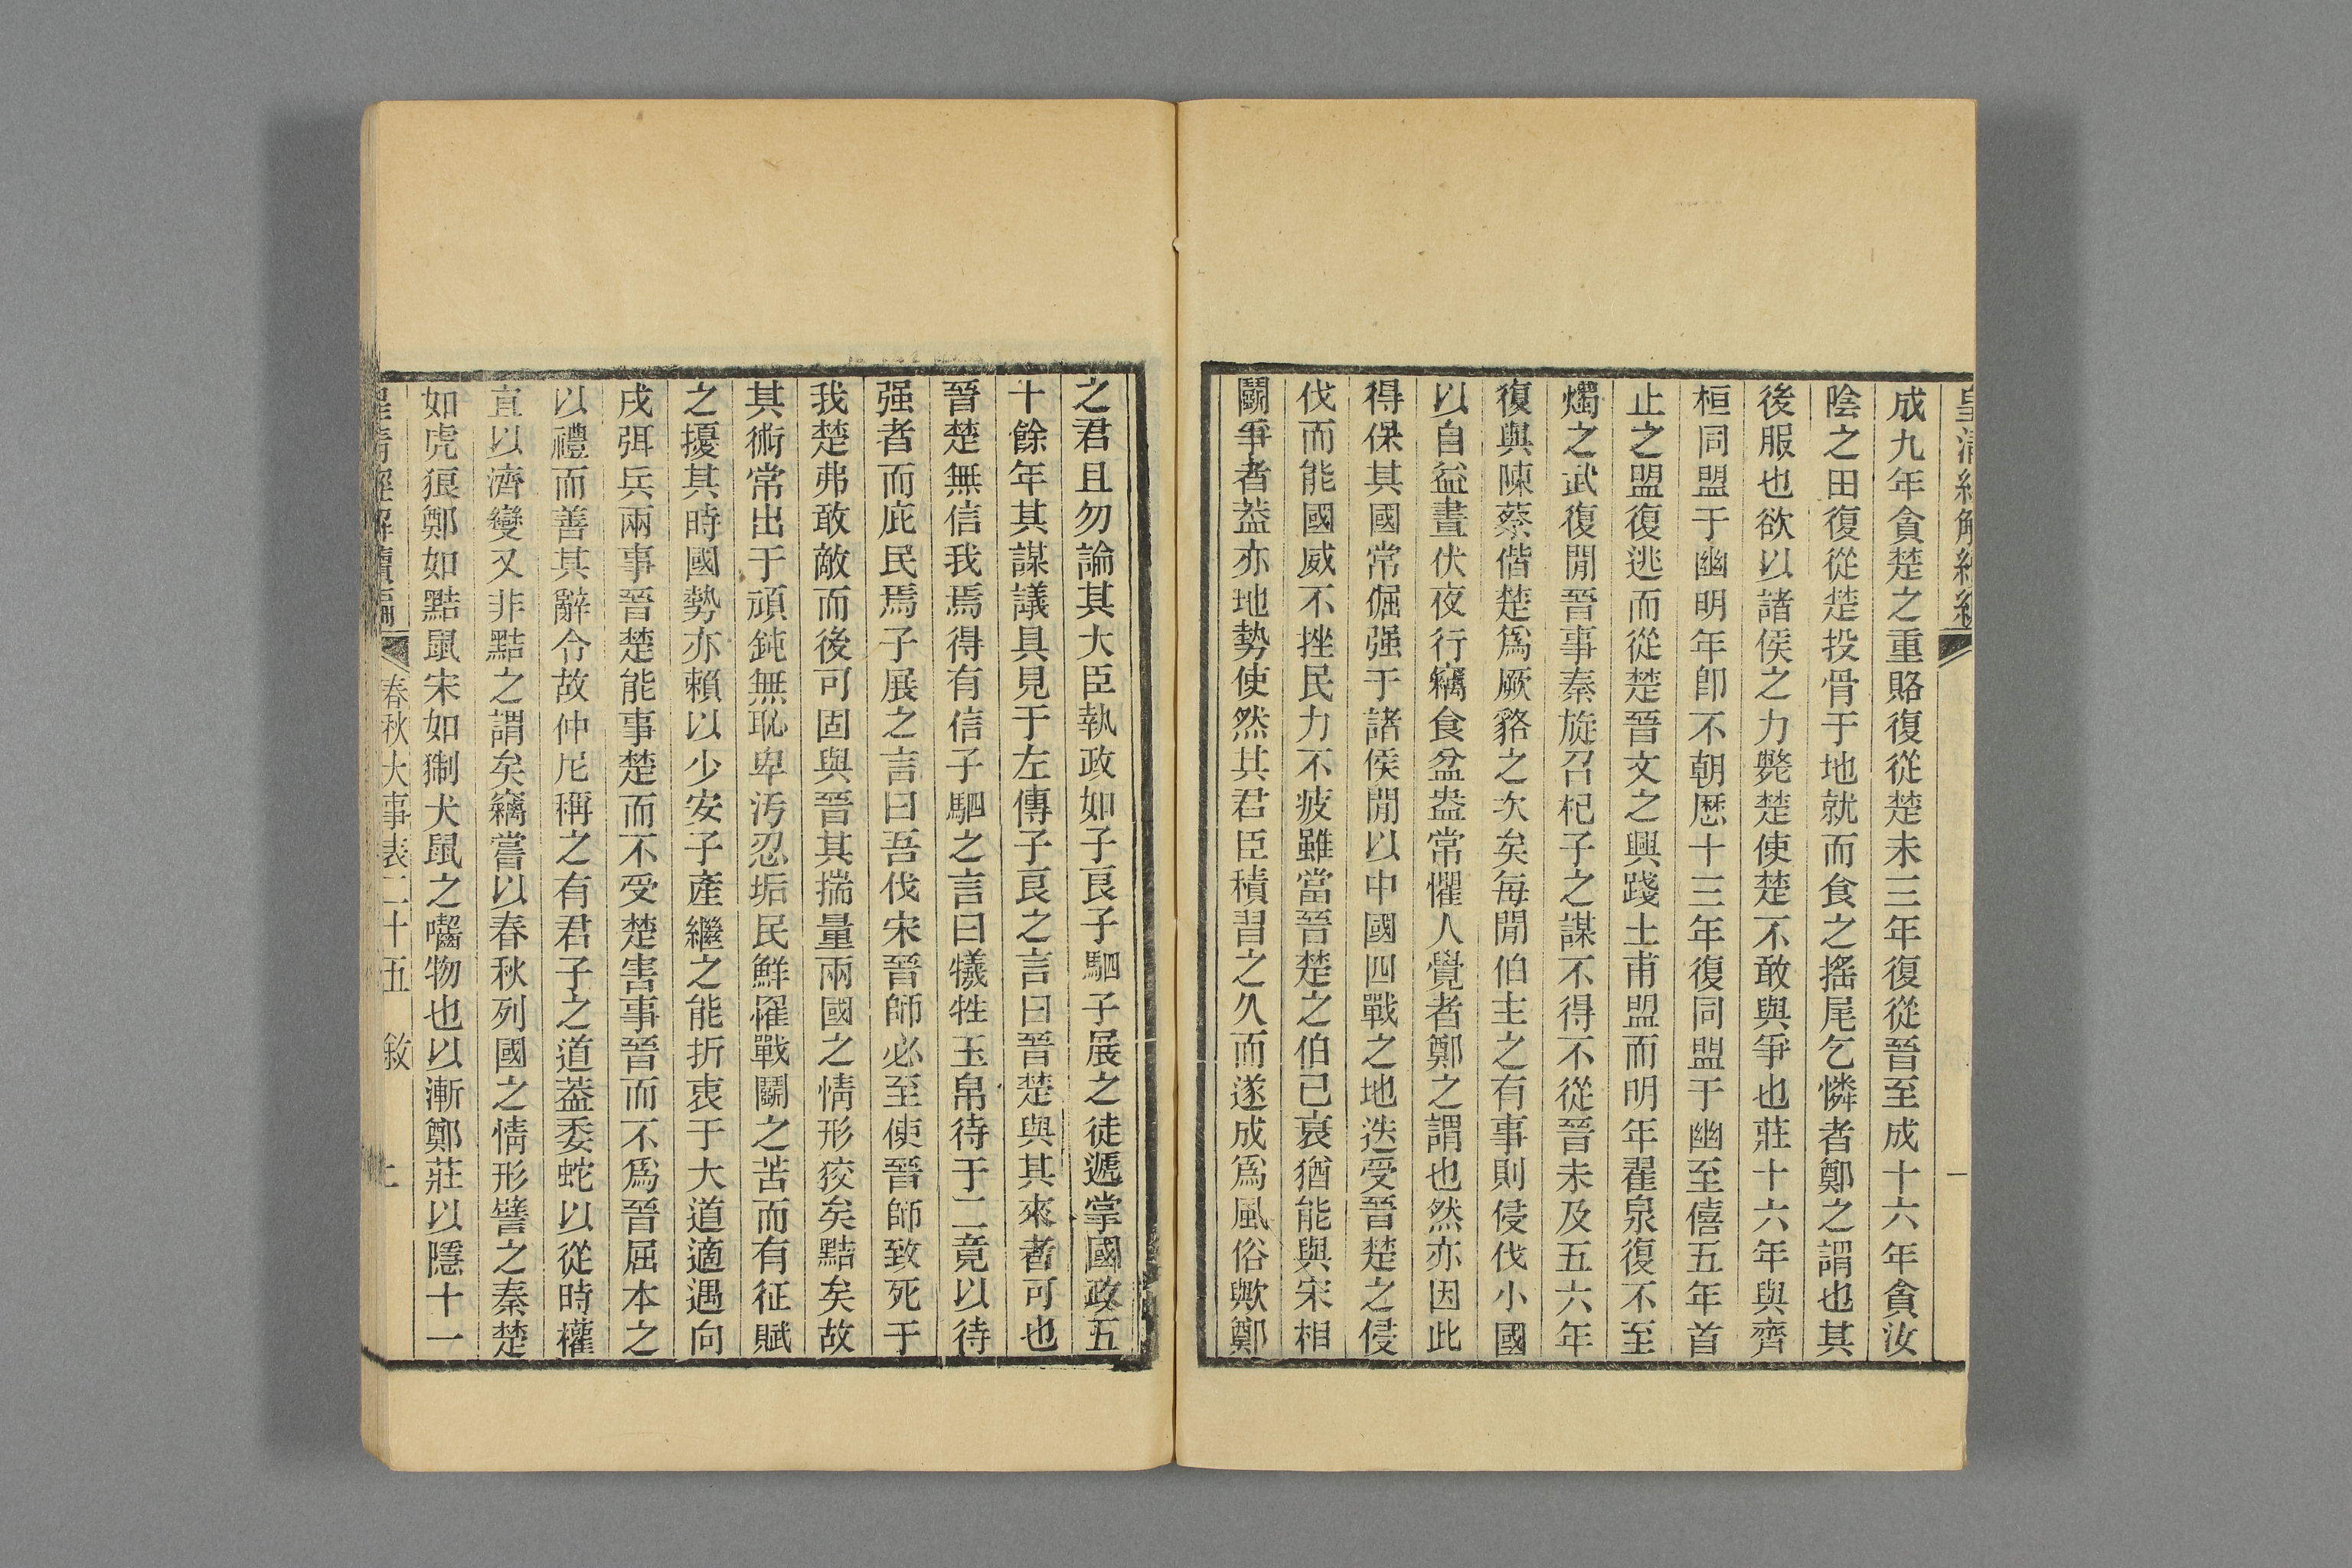 成九年貪楚之重賂復從楚未三年復從晉至成十六年貪汝
陰之田復從楚投骨于地就而食之搖尾乞憐者鄭之謂也其
後服也欲以諸侯之力斃楚使楚不敢與爭也莊十六年與齊
桓同盟于幽明年卽不朝歷十三年復同盟于幽至僖五年首
止之盟復逃而從楚晉文之興踐土甫盟而明年翟泉復不至
燭之武復閒晉事秦旋召杞子之謀不得不從晉未及五六年
復與陳蔡偕楚爲厥貉之次矣每閒伯主之有事則侵伐小國
以自益晝伏夜行竊食盆盎常懼人覺者鄭之謂也然亦因此
得保其國常倔强于諸侯閒以中國四戰之地迭受晉楚之侵
伐而能國威不挫民力不疲雖當晉楚之伯已衰猶能與宋相
鬬爭者葢亦地勢使然其君臣積習之久而遂成爲風俗歟鄭
之君且勿論其大臣執政如子良子駟子展之徒遞掌國政五
十餘年其謀議具見于左傳子良之言曰晉楚與其來者可也
晉楚無信我焉得有信子駟之言曰犧牲玉帛待于二竟以待
强者而庇民焉子展之言曰吾伐宋晉師必至使晉師致死于
我楚弗敢敵而後可固與晉其揣量兩國之情形狡矣黠矣故
其術常出于頑鈍無恥卑汚忍垢民鮮罹戰鬬之苦而有征賦
之擾其時國勢亦賴以少安子產繼之能折衷于大道適遇向
戌弭兵兩事晉楚能事楚而不受楚害事晉而不爲晉屈本之
以禮而善其辭令故仲尼稱之有君子之道葢委蛇以從時權
宜以濟變又非黠之謂矣竊嘗以春秋列國之情形譬之秦楚
如虎狼鄭如黠鼠宋如猘犬鼠之囓物也以漸鄭莊以隱十一
春秋大事表二十五 敘